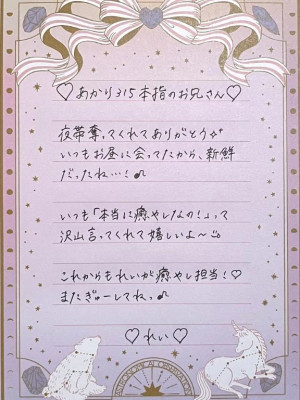 ♡ あかり315本指のお兄さん ♡
夜帯奪ってくれてありがとう
いつもお昼に会ってたから、新鮮
だったね…!♪
いつも「本当に癒やしなの!」って
沢山言ってくれて嬉しいよ〜
これからもれいが癒やし担当!♡
またぎゅーしてねっ♪
♡ れい ♡